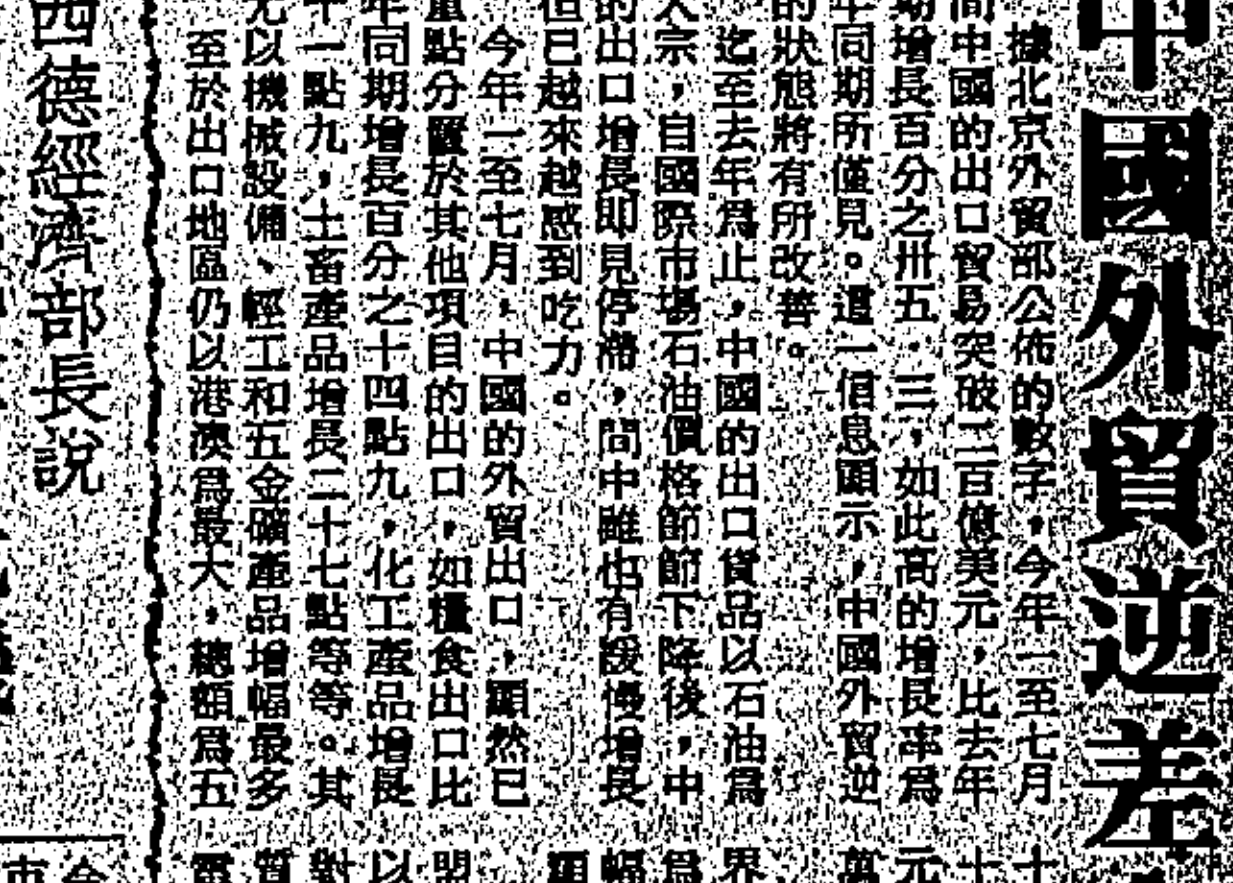 中國外貿逆差
據北京外貿部公佈的數字,今年一至七月
間中國的出口貿易突破二百億美元,比去年
期增長百分之卅五.三,如此高的增長率爲
年同期所僅見。這一信息顯示,中國外貿逆
的狀態將有所改善。
迄至去年爲止,中國的出口貨品以石油爲
大宗,自國際市場石油價格節節下降後,中
的出口增長即見停滯,間中雖也有緩慢增長
但已越來越感到吃力。
今年一至七月,中國的外貿出口,顯然已
重點分置於其他項目的出口,如糧食出口比
年同期增長百分之十四點九,化工產品增長
十一點九,土畜產品增長二十七點等等。其
尤以機械設備、輕工和五金礦產品增幅最多
至於出口地區仍以港澳爲最大,總額爲五
西德經濟部長說